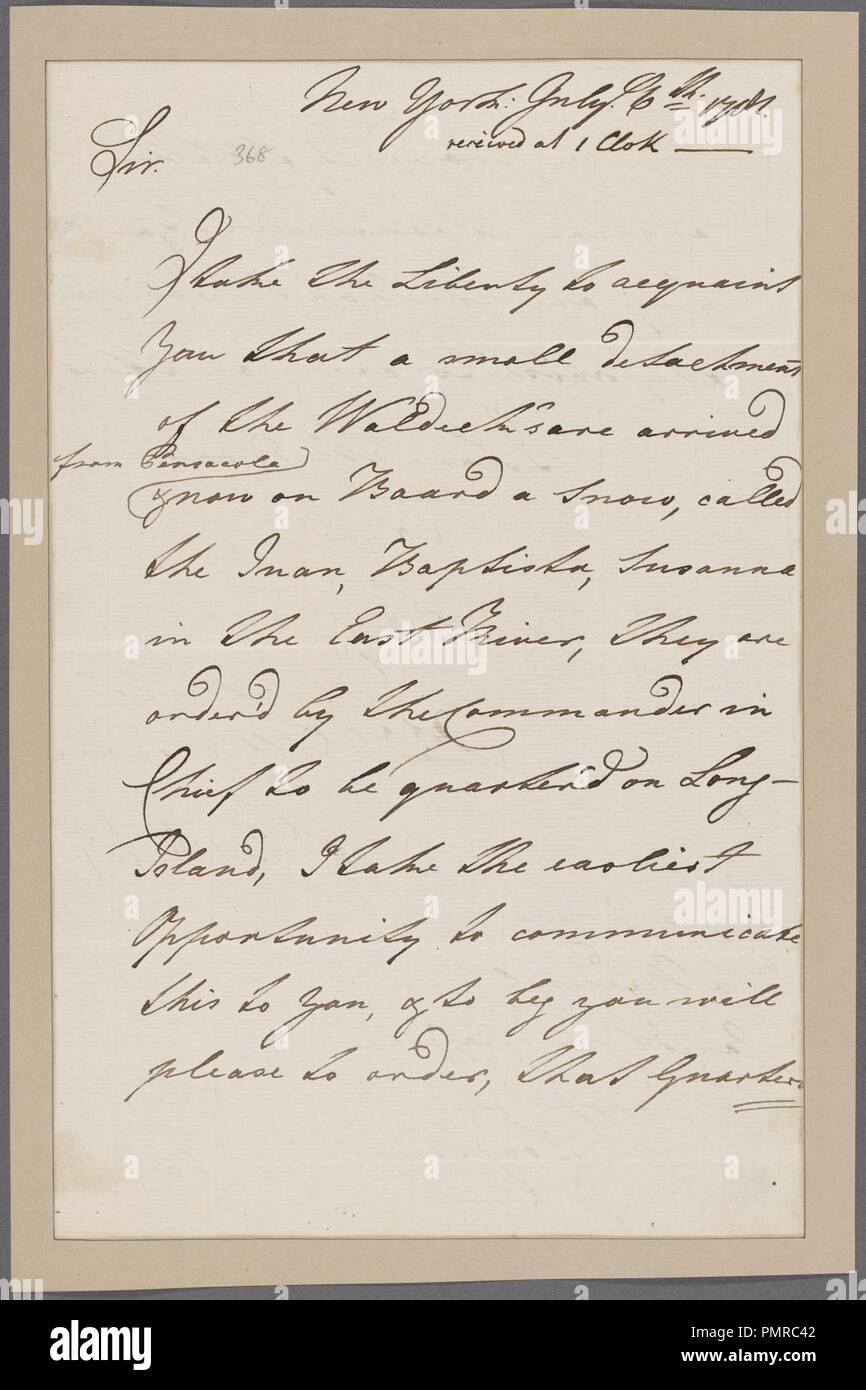 New York: July. 6th. 1781.
received at 1 Clok —
Sir.
368
I take the Liberty to acquaint
You that a small detachment
of the Waldeck's are arrived
from Pensacola
& now on Board a Snow, called
the Juan, Baptista, Susanna
in the East River, they are
order'd by the Commander in
Chief to be quarter'd on Long-
Island, I take the earliest
Opportunity to communicate
this to You, & to beg you will
please to order, that Quarters
alamy
a
alamy stock photo
PMRC42
www.alamy.com